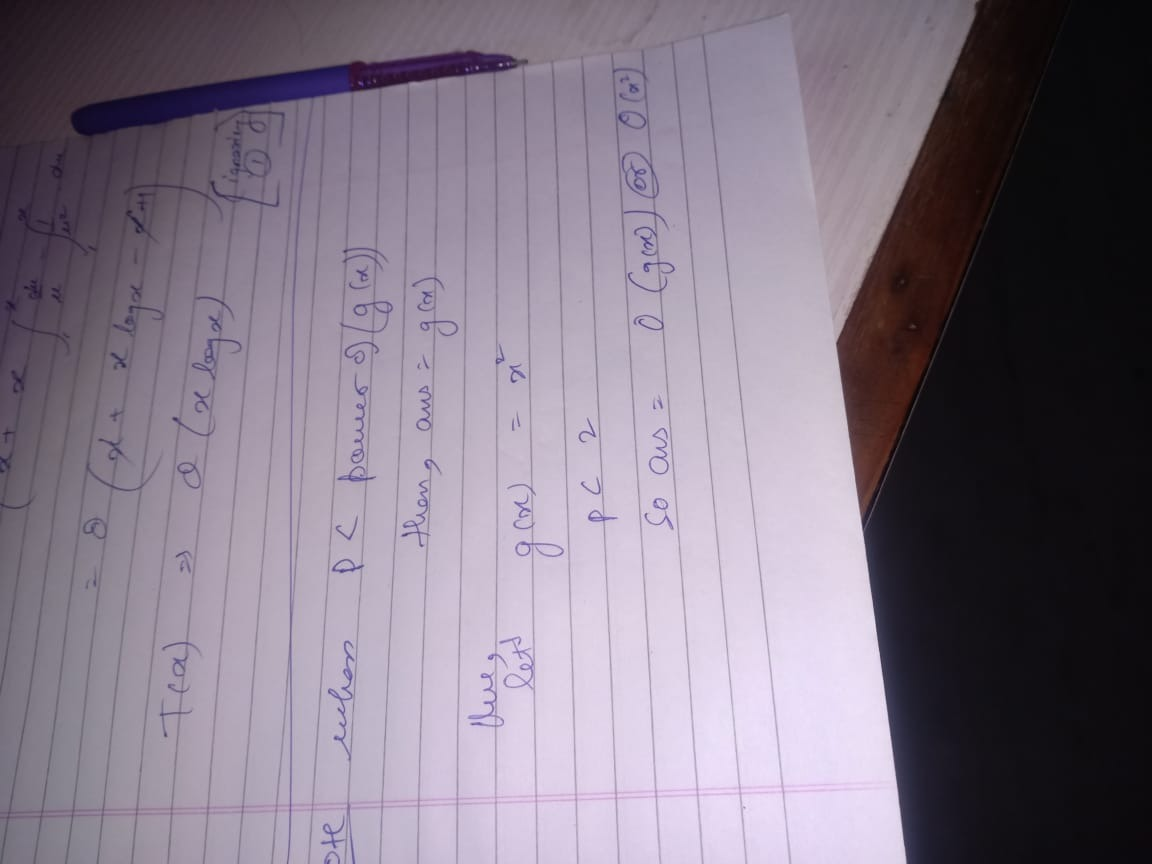 (x + x ∫₁ˣ du/u - ∫₁ˣ 1/u² du
= O (x + x log x - x + 1)
T(x) ⇒ O (x log x) [ignoring ①]
ote when P < power of (g(x))
then, ans = g(x)
Here,
let g(x) = x²
P < 2
So ans = O (g(x)) or O(x²)